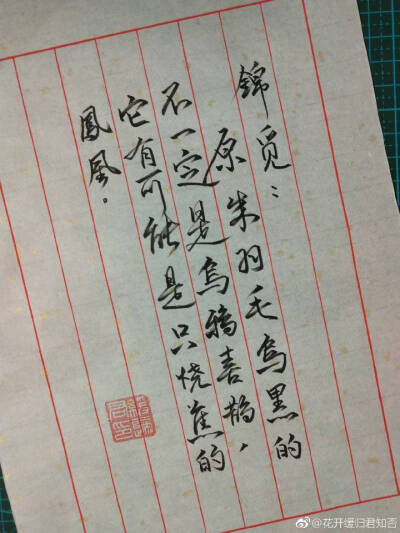 錦觅：
原来羽毛乌黑的
不一定是乌鸦喜鹊，
它有可能是只烧焦的
鳳凰。
@花开缓归君知否